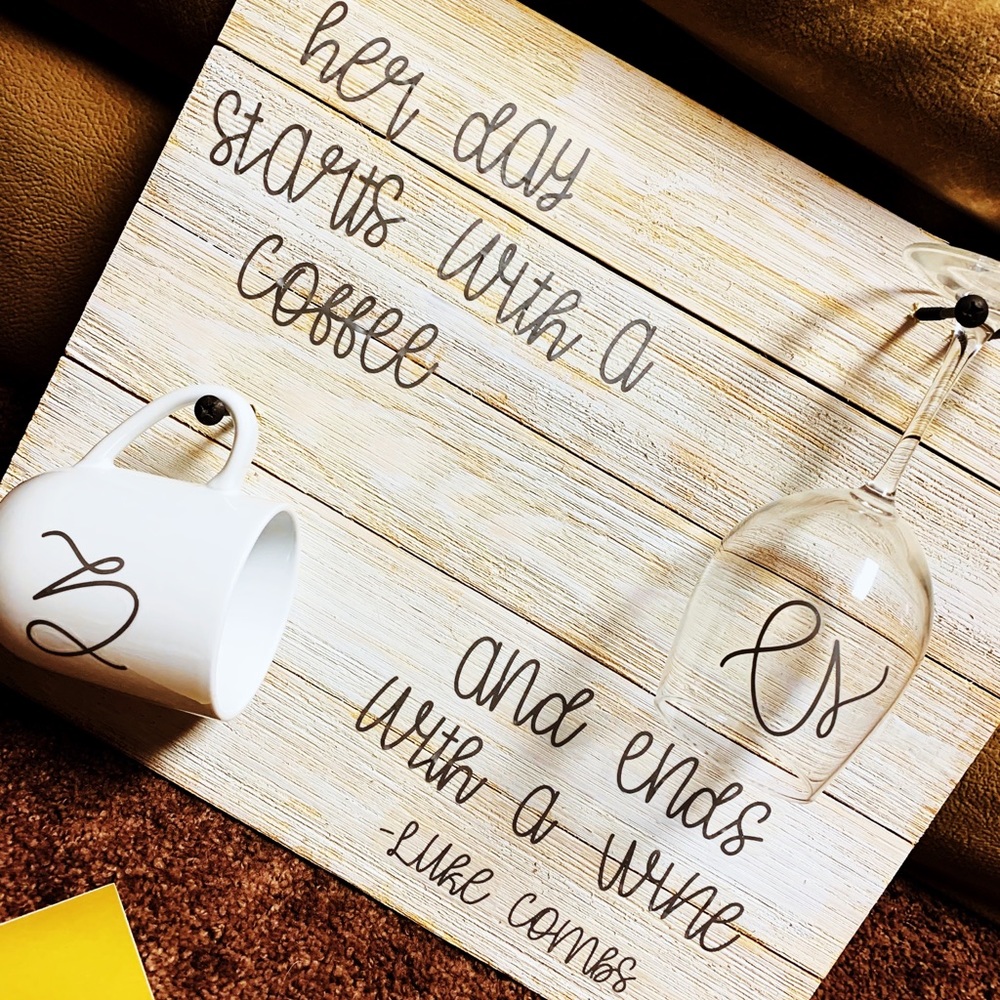 her day
starts with a
coffee
and ends
with a wine
-Luke Combs